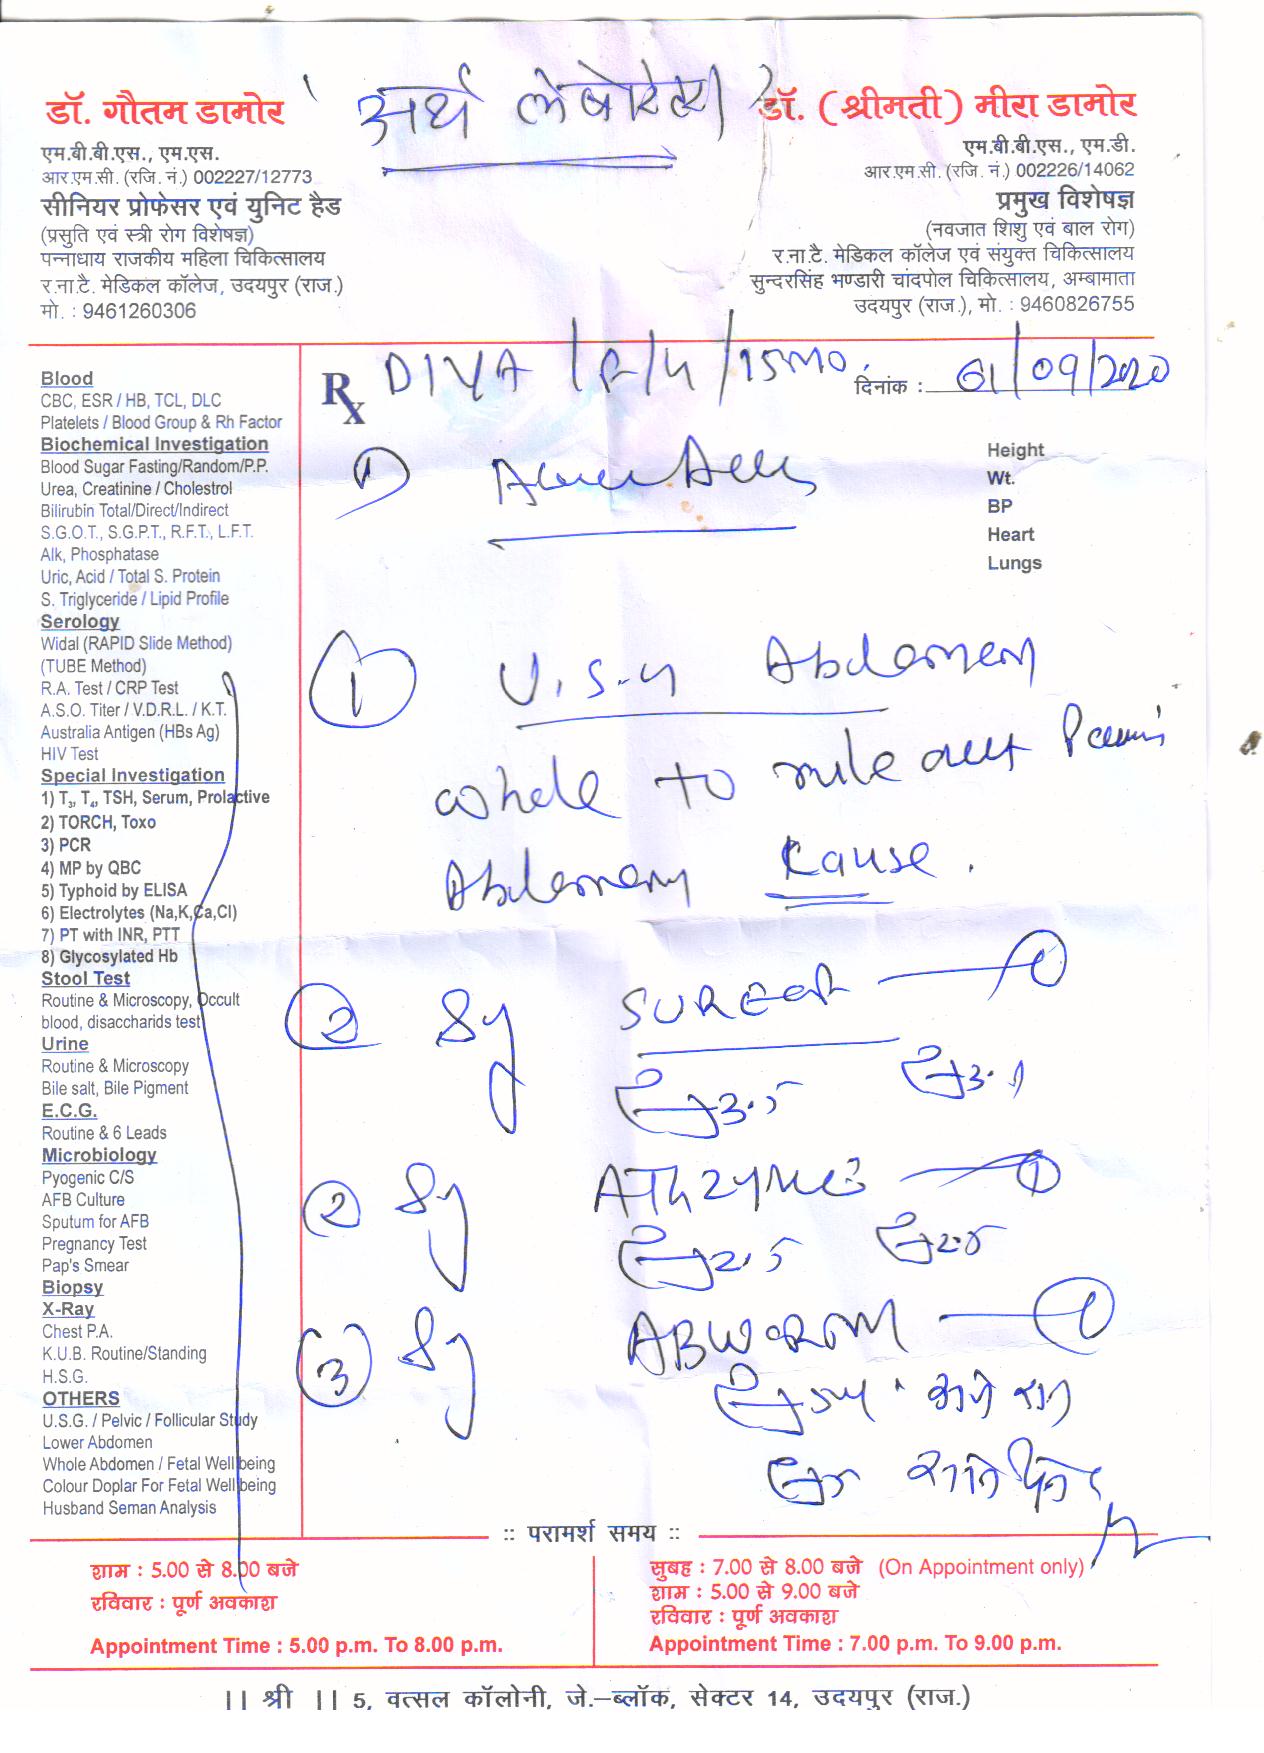 अर्थ लेबोरेट्री
डॉ. गौतम डामोर
एम.बी.बी.एस., एम.एस.
आर.एम.सी. (रजि. नं.) 002227/12773
सीनियर प्रोफेसर एवं युनिट हैड
(प्रसुति एवं स्त्री रोग विशेषज्ञ)
पन्नाधाय राजकीय महिला चिकित्सालय
र.ना.टै. मेडिकल कॉलेज, उदयपुर (राज.)
मो. : 9461260306
डॉ. (श्रीमती) मीरा डामोर
एम.बी.बी.एस., एम.डी.
आर.एम.सी. (रजि. नं.) 002226/14062
प्रमुख विशेषज्ञ
(नवजात शिशु एवं बाल रोग)
र.ना.टै. मेडिकल कॉलेज एवं संयुक्त चिकित्सालय
सुन्दरसिंह भण्डारी चांदपोल चिकित्सालय, अम्बामाता
उदयपुर (राज.), मो. : 9460826755
Blood
CBC, ESR / HB, TCL, DLC
Platelets / Blood Group & Rh Factor
Biochemical Investigation
Blood Sugar Fasting/Random/P.P.
Urea, Creatinine / Cholestrol
Bilirubin Total/Direct/Indirect
S.G.O.T., S.G.P.T., R.F.T., L.F.T.
Alk, Phosphatase
Uric, Acid / Total S. Protein
S. Triglyceride / Lipid Profile
Serology
Widal (RAPID Slide Method)
(TUBE Method)
R.A. Test / CRP Test
A.S.O. Titer / V.D.R.L. / K.T.
Australia Antigen (HBs Ag)
HIV Test
Special Investigation
1) T3, T4, TSH, Serum, Prolactive
2) TORCH, Toxo
3) PCR
4) MP by QBC
5) Typhoid by ELISA
6) Electrolytes (Na,K,Ca,Cl)
7) PT with INR, PTT
8) Glycosylated Hb
Stool Test
Routine & Microscopy, Occult
blood, disaccharids test
Urine
Routine & Microscopy
Bile salt, Bile Pigment
E.C.G.
Routine & 6 Leads
Microbiology
Pyogenic C/S
AFB Culture
Sputum for AFB
Pregnancy Test
Pap's Smear
Biopsy
X-Ray
Chest P.A.
K.U.B. Routine/Standing
H.S.G.
OTHERS
U.S.G. / Pelvic / Follicular Study
Lower Abdomen
Whole Abdomen / Fetal Well being
Colour Doplar For Fetal Well being
Husband Seman Analysis
Rx DIYA /15MO.
दिनांक : 01/09/2020
Height
Wt.
BP
Heart
Lungs
1
1 U.S.G Abdomen
whole to rule out
Abdomen cause.
2 Sy
3.5
2 Sy 1
2.5 2.5
3 Sy ABWORM 1
:: परामर्श समय ::
शाम : 5.00 से 8.00 बजे
रविवार : पूर्ण अवकाश
Appointment Time : 5.00 p.m. To 8.00 p.m.
सुबह : 7.00 से 8.00 बजे (On Appointment only)
शाम : 5.00 से 9.00 बजे
रविवार : पूर्ण अवकाश
Appointment Time : 7.00 p.m. To 9.00 p.m.
|| श्री || 5, वत्सल कॉलोनी, जे.–ब्लॉक, सेक्टर 14, उदयपुर (राज.)